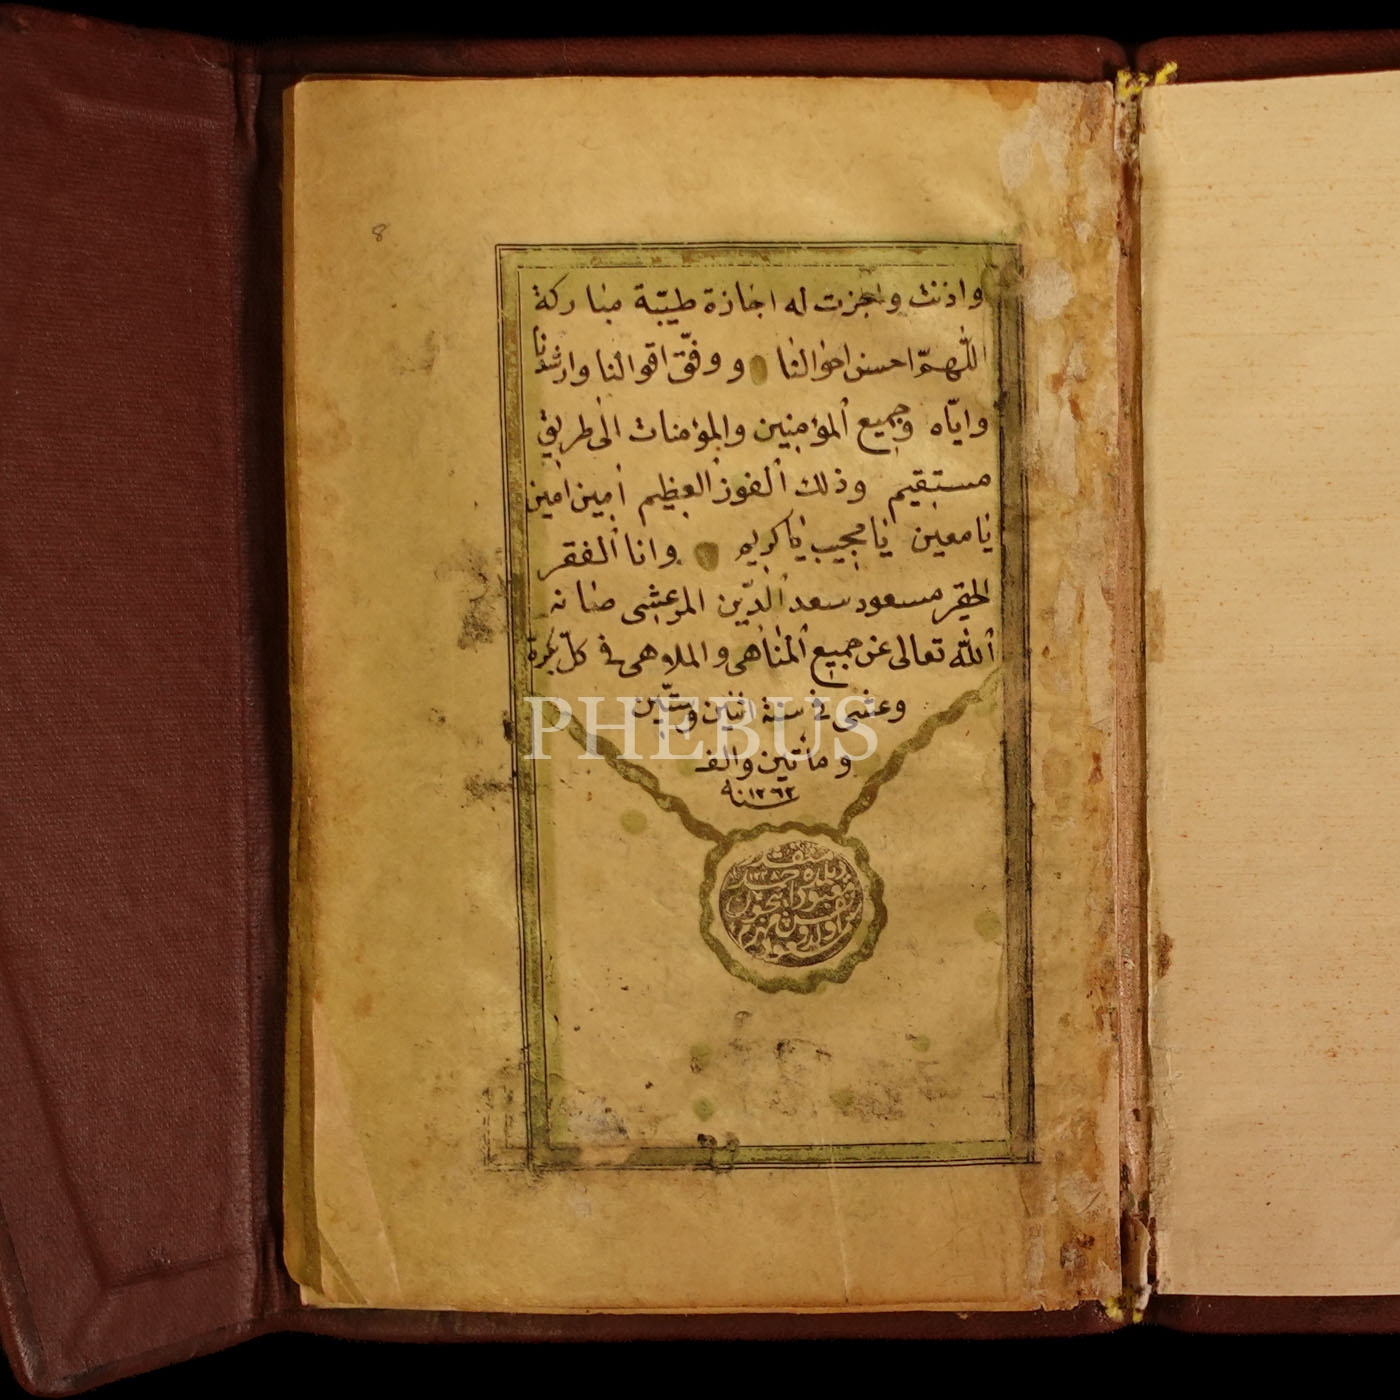 8
واذنت واجزت له اجازة طيّبة مباركة
اللّهمّ احسن احوالنا ووفّق اقوالنا وارشدنا
وايّاه وجميع المؤمنين والمؤمنات الى طريق
مستقيم وذلك الفوز العظيم امين امين
يا معين يا مجيب يا كريم وانا الفقر
الحقر مسعود سعد الدّين المرعشى صانه
الله تعالى عن جميع المناهى والملاهى فى كلّ بكرة
وعشى فى سنة اثنين وستّين
ومأتين والف
سنه ١٢٦٢
PHEBUS